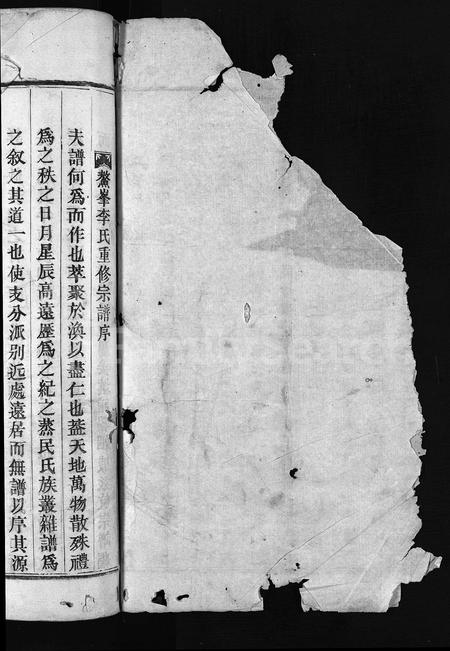 鰲峯李氏重修宗譜序
夫譜何爲而作也萃聚於渙以盡仁也葢天地萬物散殊禮
爲之秩之日月星辰高遠歷爲之紀之蒸民氏族叢雜譜爲
之叙之其道一也使支分派别近處遠居而無譜以序其源
FamilySearch